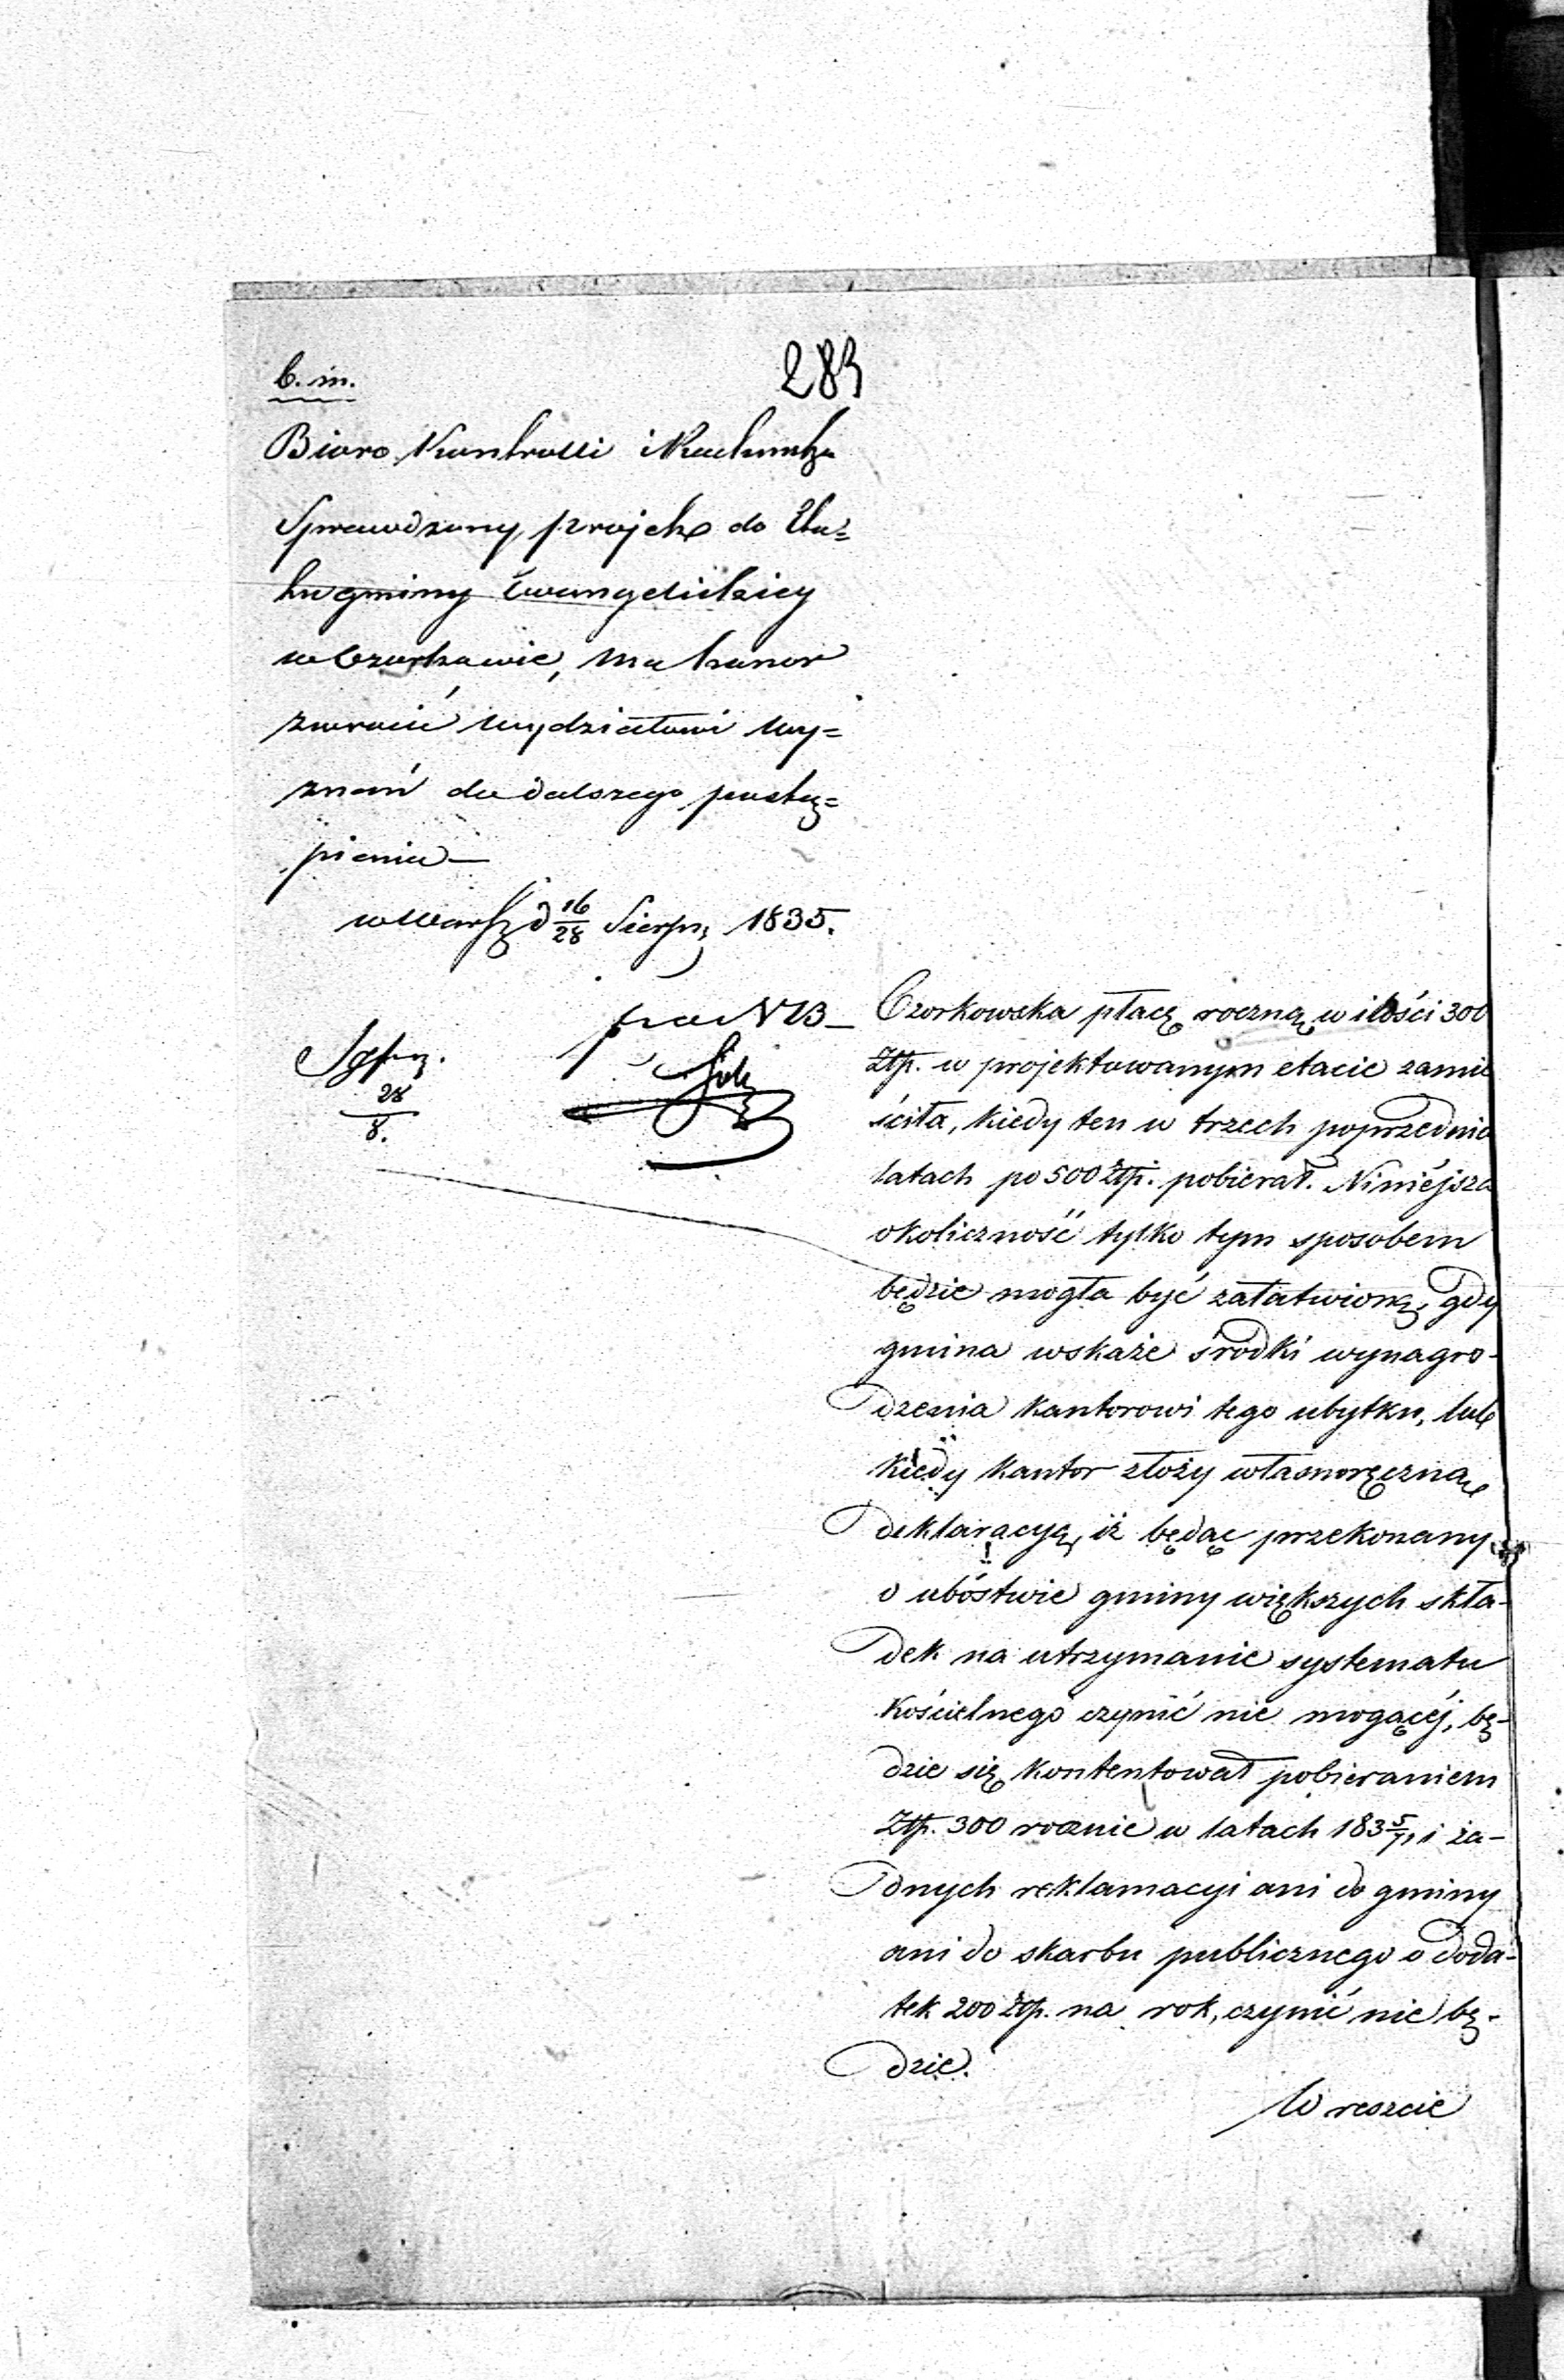 283
b. m.
Biuro Kontrolli i Rachunk
Sprawdzony projekt do Eta=
tu gminy Ewangelickiey
w Ozorkowie, ma honor
zwrócić Wydziałowi Wy=
znań do dalszego postę=
pienia —
w Warsz d 16/28 Sierpn 1835.
28
8.
Ozorkowska płacę roczną w ilości 300
Złp. w projektowanym etacie zamie
ściła, kiedy ten w trzech poprzednio
latach po 500 Złp. pobierał. Niniéjsza
okoliczność tylko tym sposobem
będzie mogła być załatwioną, gdy
gmina wskaże środki wynagro-
dzenia kantorowi tego ubytku, lub
kiedy kantor złoży własnoręczną
deklaracyą, iż będąc przekonany
o ubóstwie gminy większych skła-
dek na utrzymanie systematu
kościelnego czynić nie mogącéj, bę-
dzie się kontentował pobieraniem
Złp. 300 rocznie w latach 183 5/7, i ża-
dnych reklamacyi ani do gminy
ani do skarbu publicznego o doda-
tek 200 Złp. na rok, czynić nie bę-
dzie.
W reszcie